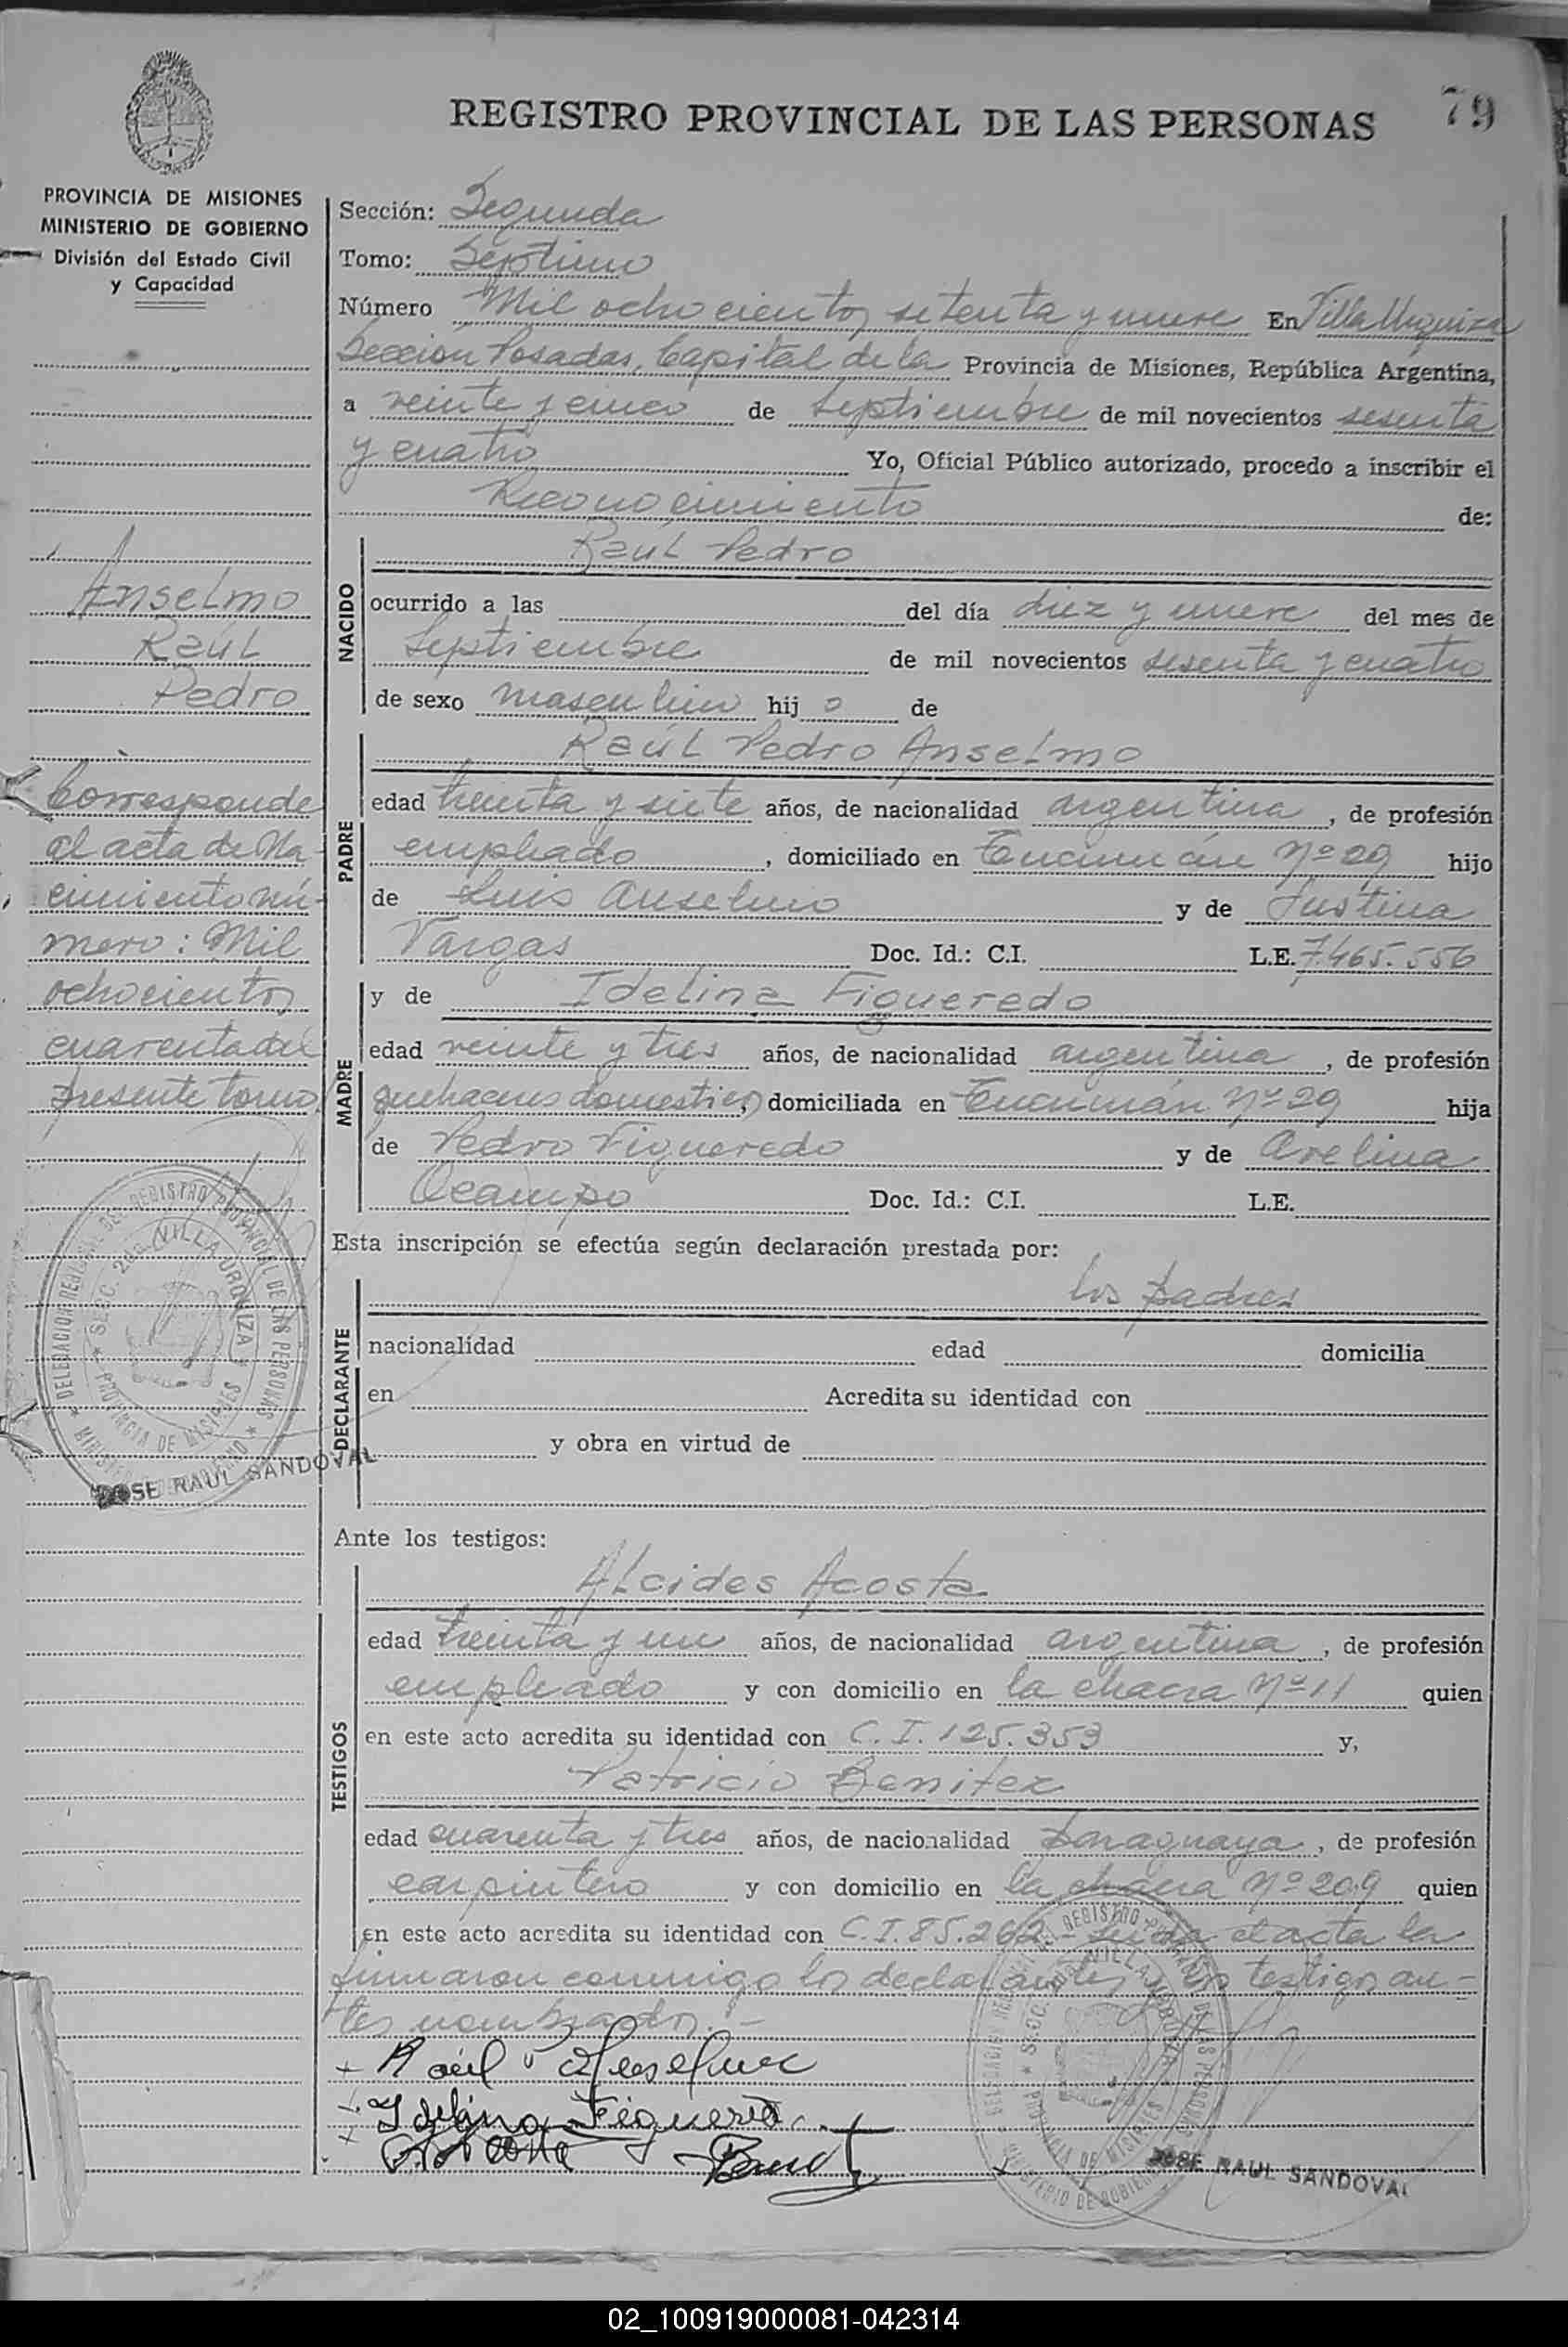 REGISTRO PROVINCIAL DE LAS PERSONAS
79
PROVINCIA DE MISIONES
MINISTERIO DE GOBIERNO
División del Estado Civil
y Capacidad
Anselmo
Raúl
Pedro
Corresponde
al acta de Na-
cimiento nú-
mero: Mil
ochocientos
cuarenta del
presente tomo.
DELEGACION DEL REGISTRO PROVINCIAL DE LAS PERSONAS
SECC. 2da. VILLA URQUIZA
PROVINCIA DE MISIONES
MINISTERIO DE GOBIERNO
JOSE RAUL SANDOVAL
Sección: Segunda
Tomo: Séptimo
Número Mil ochocientos setenta y nueve En Villa Urquiza
Sección Posadas, Capital de la Provincia de Misiones, República Argentina,
a veinte y cinco de Septiembre de mil novecientos sesenta
y cuatro Yo, Oficial Público autorizado, procedo a inscribir el
Reconocimiento de:
NACIDO
Raúl Pedro
ocurrido a las del día diez y nueve del mes de
Septiembre de mil novecientos sesenta y cuatro
de sexo masculino hijo de
PADRE
Raúl Pedro Anselmo
edad treinta y siete años, de nacionalidad argentina, de profesión
empleado, domiciliado en Tucumán Nº 29 hijo
de Luis Anselmo y de Justina
Vargas Doc. Id.: C.I. L.E. 7.465.556
MADRE
y de Idelina Figueredo
edad veinte y tres años, de nacionalidad argentina, de profesión
quehaceres domesticos, domiciliada en Tucumán Nº 29 hija
de Pedro Figueredo y de Avelina
Ocampo Doc. Id.: C.I. L.E.
Esta inscripción se efectúa según declaración prestada por:
DECLARANTE
los padres
nacionalidad edad domicilia
en Acredita su identidad con
y obra en virtud de
Ante los testigos:
TESTIGOS
Alcides Acosta
edad treinta y un años, de nacionalidad argentina, de profesión
empleado y con domicilio en la chacra Nº 11 quien
en este acto acredita su identidad con C.I. 125.353 y,
Patricio Benitez
edad cuarenta y tres años, de nacionalidad paraguaya, de profesión
carpintero y con domicilio en la chacra Nº 209 quien
en este acto acredita su identidad con C.I. 85.262.- Leida el acta la
firmaron conmigo los declarantes y los testigos an-
tes nombrados.-
Raúl P Anselmo
Idelina Figueredo
JOSE RAUL SANDOVAL
02_100919000081-042314